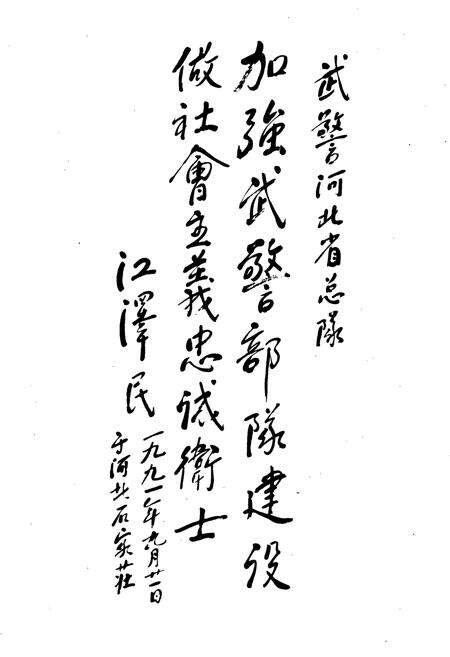 武警河北省总隊
加強武警部隊建设
做社會主義忠诚衛士
江澤民
一九九一年九月廿一日
于河北石家莊